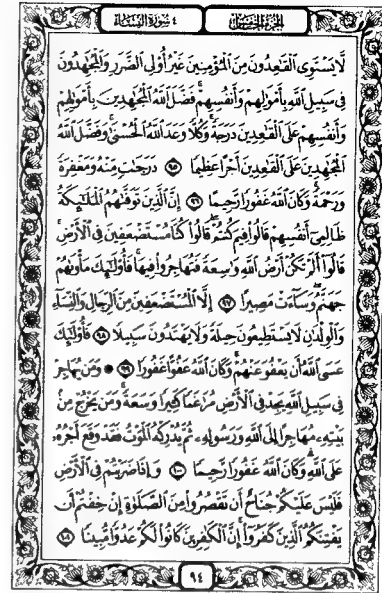 الجزء الخامس
٤ سورة النساء
لَّا يَسْتَوِى ٱلْقَٰعِدُونَ مِنَ ٱلْمُؤْمِنِينَ غَيْرُ أُو۟لِى ٱلضَّرَرِ وَٱلْمُجَٰهِدُونَ
فِى سَبِيلِ ٱللَّهِ بِأَمْوَٰلِهِمْ وَأَنفُسِهِمْ ۚ فَضَّلَ ٱللَّهُ ٱلْمُجَٰهِدِينَ بِأَمْوَٰلِهِمْ
وَأَنفُسِهِمْ عَلَى ٱلْقَٰعِدِينَ دَرَجَةً ۚ وَكُلًّا وَعَدَ ٱللَّهُ ٱلْحُسْنَىٰ ۚ وَفَضَّلَ ٱللَّهُ
ٱلْمُجَٰهِدِينَ عَلَى ٱلْقَٰعِدِينَ أَجْرًا عَظِيمًا ٩٥ دَرَجَٰتٍ مِّنْهُ وَمَغْفِرَةً
وَرَحْمَةً ۚ وَكَانَ ٱللَّهُ غَفُورًا رَّحِيمًا ٩٦ إِنَّ ٱلَّذِينَ تَوَفَّىٰهُمُ ٱلْمَلَٰٓئِكَةُ
ظَالِمِىٓ أَنفُسِهِمْ قَالُوا۟ فِيمَ كُنتُمْ ۖ قَالُوا۟ كُنَّا مُسْتَضْعَفِينَ فِى ٱلْأَرْضِ ۚ
قَالُوٓا۟ أَلَمْ تَكُنْ أَرْضُ ٱللَّهِ وَٰسِعَةً فَتُهَاجِرُوا۟ فِيهَا ۚ فَأُو۟لَٰٓئِكَ مَأْوَىٰهُمْ
جَهَنَّمُ ۖ وَسَآءَتْ مَصِيرًا ٩٧ إِلَّا ٱلْمُسْتَضْعَفِينَ مِنَ ٱلرِّجَالِ وَٱلنِّسَآءِ
وَٱلْوِلْدَٰنِ لَا يَسْتَطِيعُونَ حِيلَةً وَلَا يَهْتَدُونَ سَبِيلًا ٩٨ فَأُو۟لَٰٓئِكَ
عَسَى ٱللَّهُ أَن يَعْفُوَ عَنْهُمْ ۚ وَكَانَ ٱللَّهُ عَفُوًّا غَفُورًا ٩٩ وَمَن يُهَاجِرْ
فِى سَبِيلِ ٱللَّهِ يَجِدْ فِى ٱلْأَرْضِ مُرَٰغَمًا كَثِيرًا وَسَعَةً ۚ وَمَن يَخْرُجْ مِنۢ
بَيْتِهِۦ مُهَاجِرًا إِلَى ٱللَّهِ وَرَسُولِهِۦ ثُمَّ يُدْرِكْهُ ٱلْمَوْتُ فَقَدْ وَقَعَ أَجْرُهُۥ
عَلَى ٱللَّهِ ۗ وَكَانَ ٱللَّهُ غَفُورًا رَّحِيمًا ١٠٠ وَإِذَا ضَرَبْتُمْ فِى ٱلْأَرْضِ
فَلَيْسَ عَلَيْكُمْ جُنَاحٌ أَن تَقْصُرُوا۟ مِنَ ٱلصَّلَوٰةِ إِنْ خِفْتُمْ أَن
يَفْتِنَكُمُ ٱلَّذِينَ كَفَرُوٓا۟ ۚ إِنَّ ٱلْكَٰفِرِينَ كَانُوا۟ لَكُمْ عَدُوًّا مُّبِينًا ١٠١
٩٤